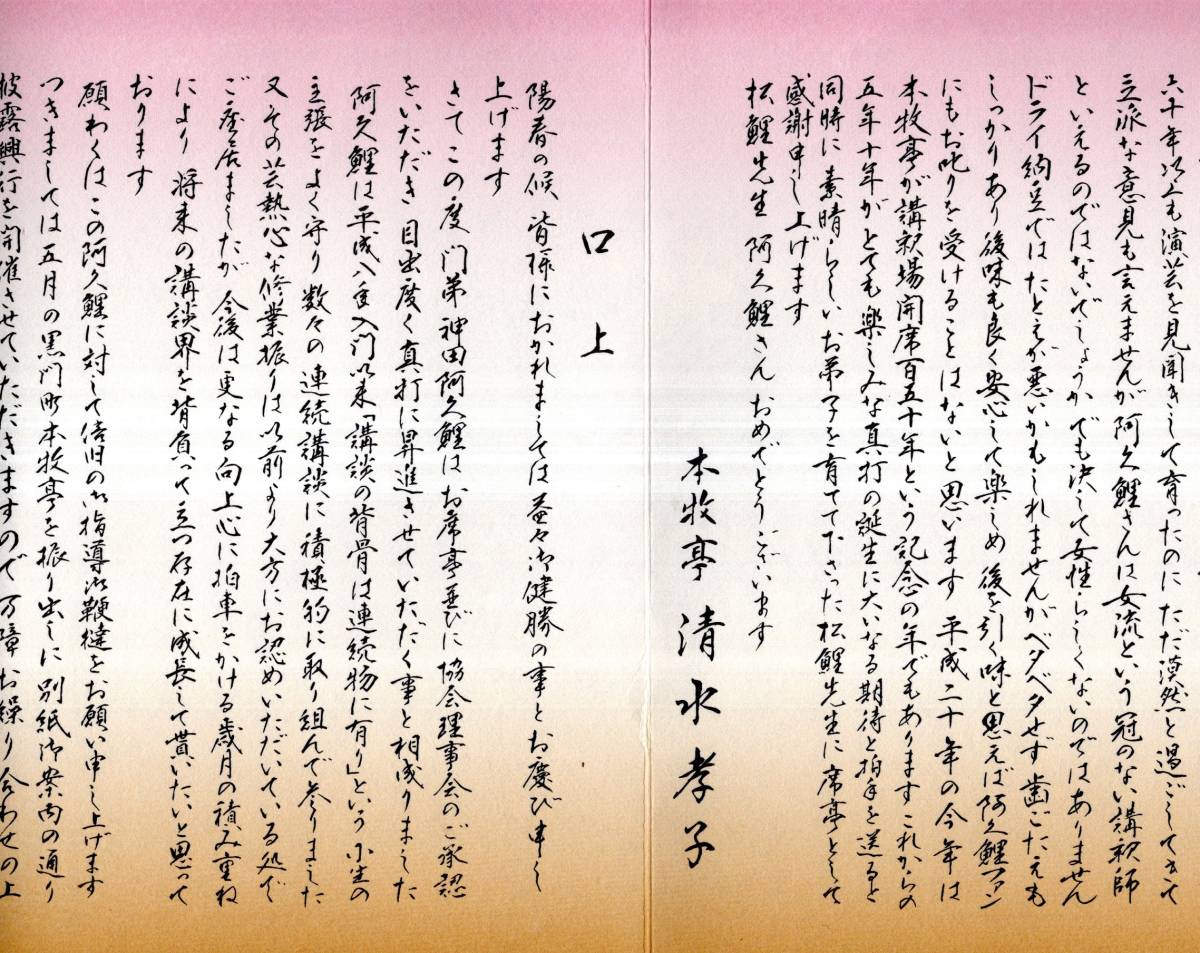 六十年以上も演芸を見聞きして育ったのにただ漠然と過ごしてきて
立派な意見も言えませんが阿久鯉さんは女流という冠のない講釈師
といえるのではないでしょうか でも決して女性らしくないのではありません
ドライ納豆ではたとえが悪いかもしれませんがベタベタせず歯ごたえも
しっかりあり後味も良く安心して楽しめ後を引く味と思えば阿久鯉ファン
にもお叱りを受けることはないと思います 平成二十年の今年は
本牧亭が講釈場開席百五十年という記念の年でもあります これからの
五年十年がとても楽しみな真打の誕生に大いなる期待と拍手を送ると
同時に素晴らしいお弟子を育てて下さった松鯉先生に席亭として
感謝申し上げます
松鯉先生 阿久鯉さん おめでとうございます
本牧亭 清水孝子
口上
陽春の候 皆様におかれましては益々御健勝の事とお慶び申し
上げます
さてこの度 門弟 神田阿久鯉はお席亭並びに協会理事会のご承認
をいただき 目出度く真打に昇進させていただく事と相成りました
阿久鯉は平成八年入門以来「講談の背骨は連続物に有り」という小生の
主張をよく守り数々の連続講談に積極的に取り組んで参りました
又その芸熱心な修業振りは以前より大方にお認めいただいている処で
ご座居ましたが 今後は更なる向上心に拍車をかける歳月の積み重ね
により 将来の講談界を背負って立つ存在に成長して貰いたいと思って
おります
願わくはこの阿久鯉に対して倍旧の御指導御鞭撻をお願い申し上げます
つきましては五月の黒門町本牧亭を振り出しに別紙御案内の通り
披露興行を開催させていただきますので万障お繰り合わせの上